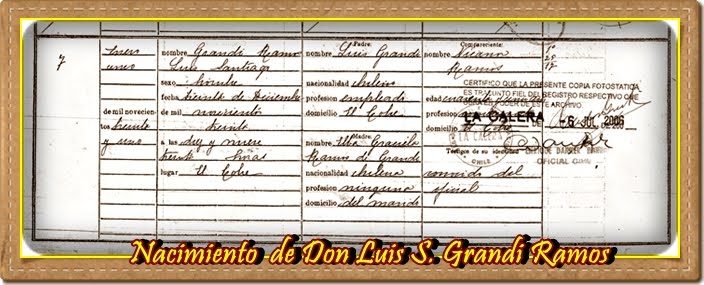 7
Enero
uno
de mil novecien-
tos treinta
y uno
nombre Grandi Ramos
Luis Santiago
sexo
fecha treinta de Diciembre
de mil novecientos
treinta
a las diez y nueve
treinta horas
lugar El Cobre
Padre:
nombre Luis Grandi
nacionalidad chileno
profesion empleado
domicilio El Cobre
Madre
Graciela
Ramos de Grandi
nacionalidad chilena
profesion ninguna
domicilio del marido
Compareciente:
nombre
Ramos
edad
profesion
domicilio El Cobre
Testigos de su identidad
conocido del
oficial
CERTIFICO QUE LA PRESENTE COPIA FOTOSTATICA
ES TRASUNTO FIEL DEL REGISTRO RESPECTIVO QUE
OBRA EN PODER DE ESTE ARCHIVO
LA CALERA - 6 JUL. 2006
LA CALERA
CHILE
OFICIAL CIVIL
Nacimiento de Don Luis S. Grandi Ramos